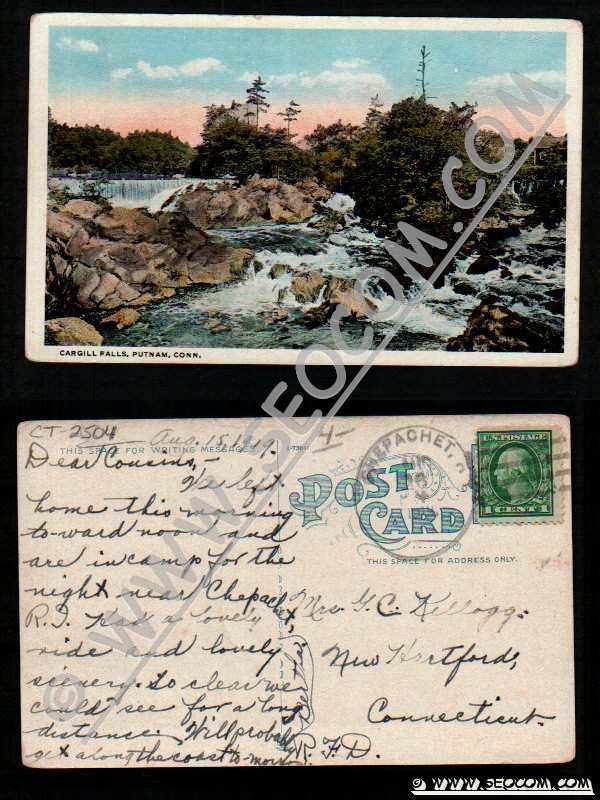 CARGILL FALLS, PUTNAM, CONN.
© WWW.SEOCOM.COM
CT-2504
Aug. 15, 1919.
4-
THIS SPACE FOR WRITING MESSAGES
Dear Cousins,-
We left
home this morning
to-ward noon and
are in camp for the
night near Chepachet,
R.I. Had a lovely
ride and lovely
scenery. So clear we
could see for a long
distance. Will probably
get along the coast to-morrow
Bertha
POST CARD
THIS SPACE FOR ADDRESS ONLY.
CHEPACHET, R
U.S. POSTAGE
1 CENT 1
Mrs. G. C. Kellogg.
New Hartford,
Connecticut.
R. F. D.
© WWW.SEOCOM.COM
© WWW.SEOCOM.COM